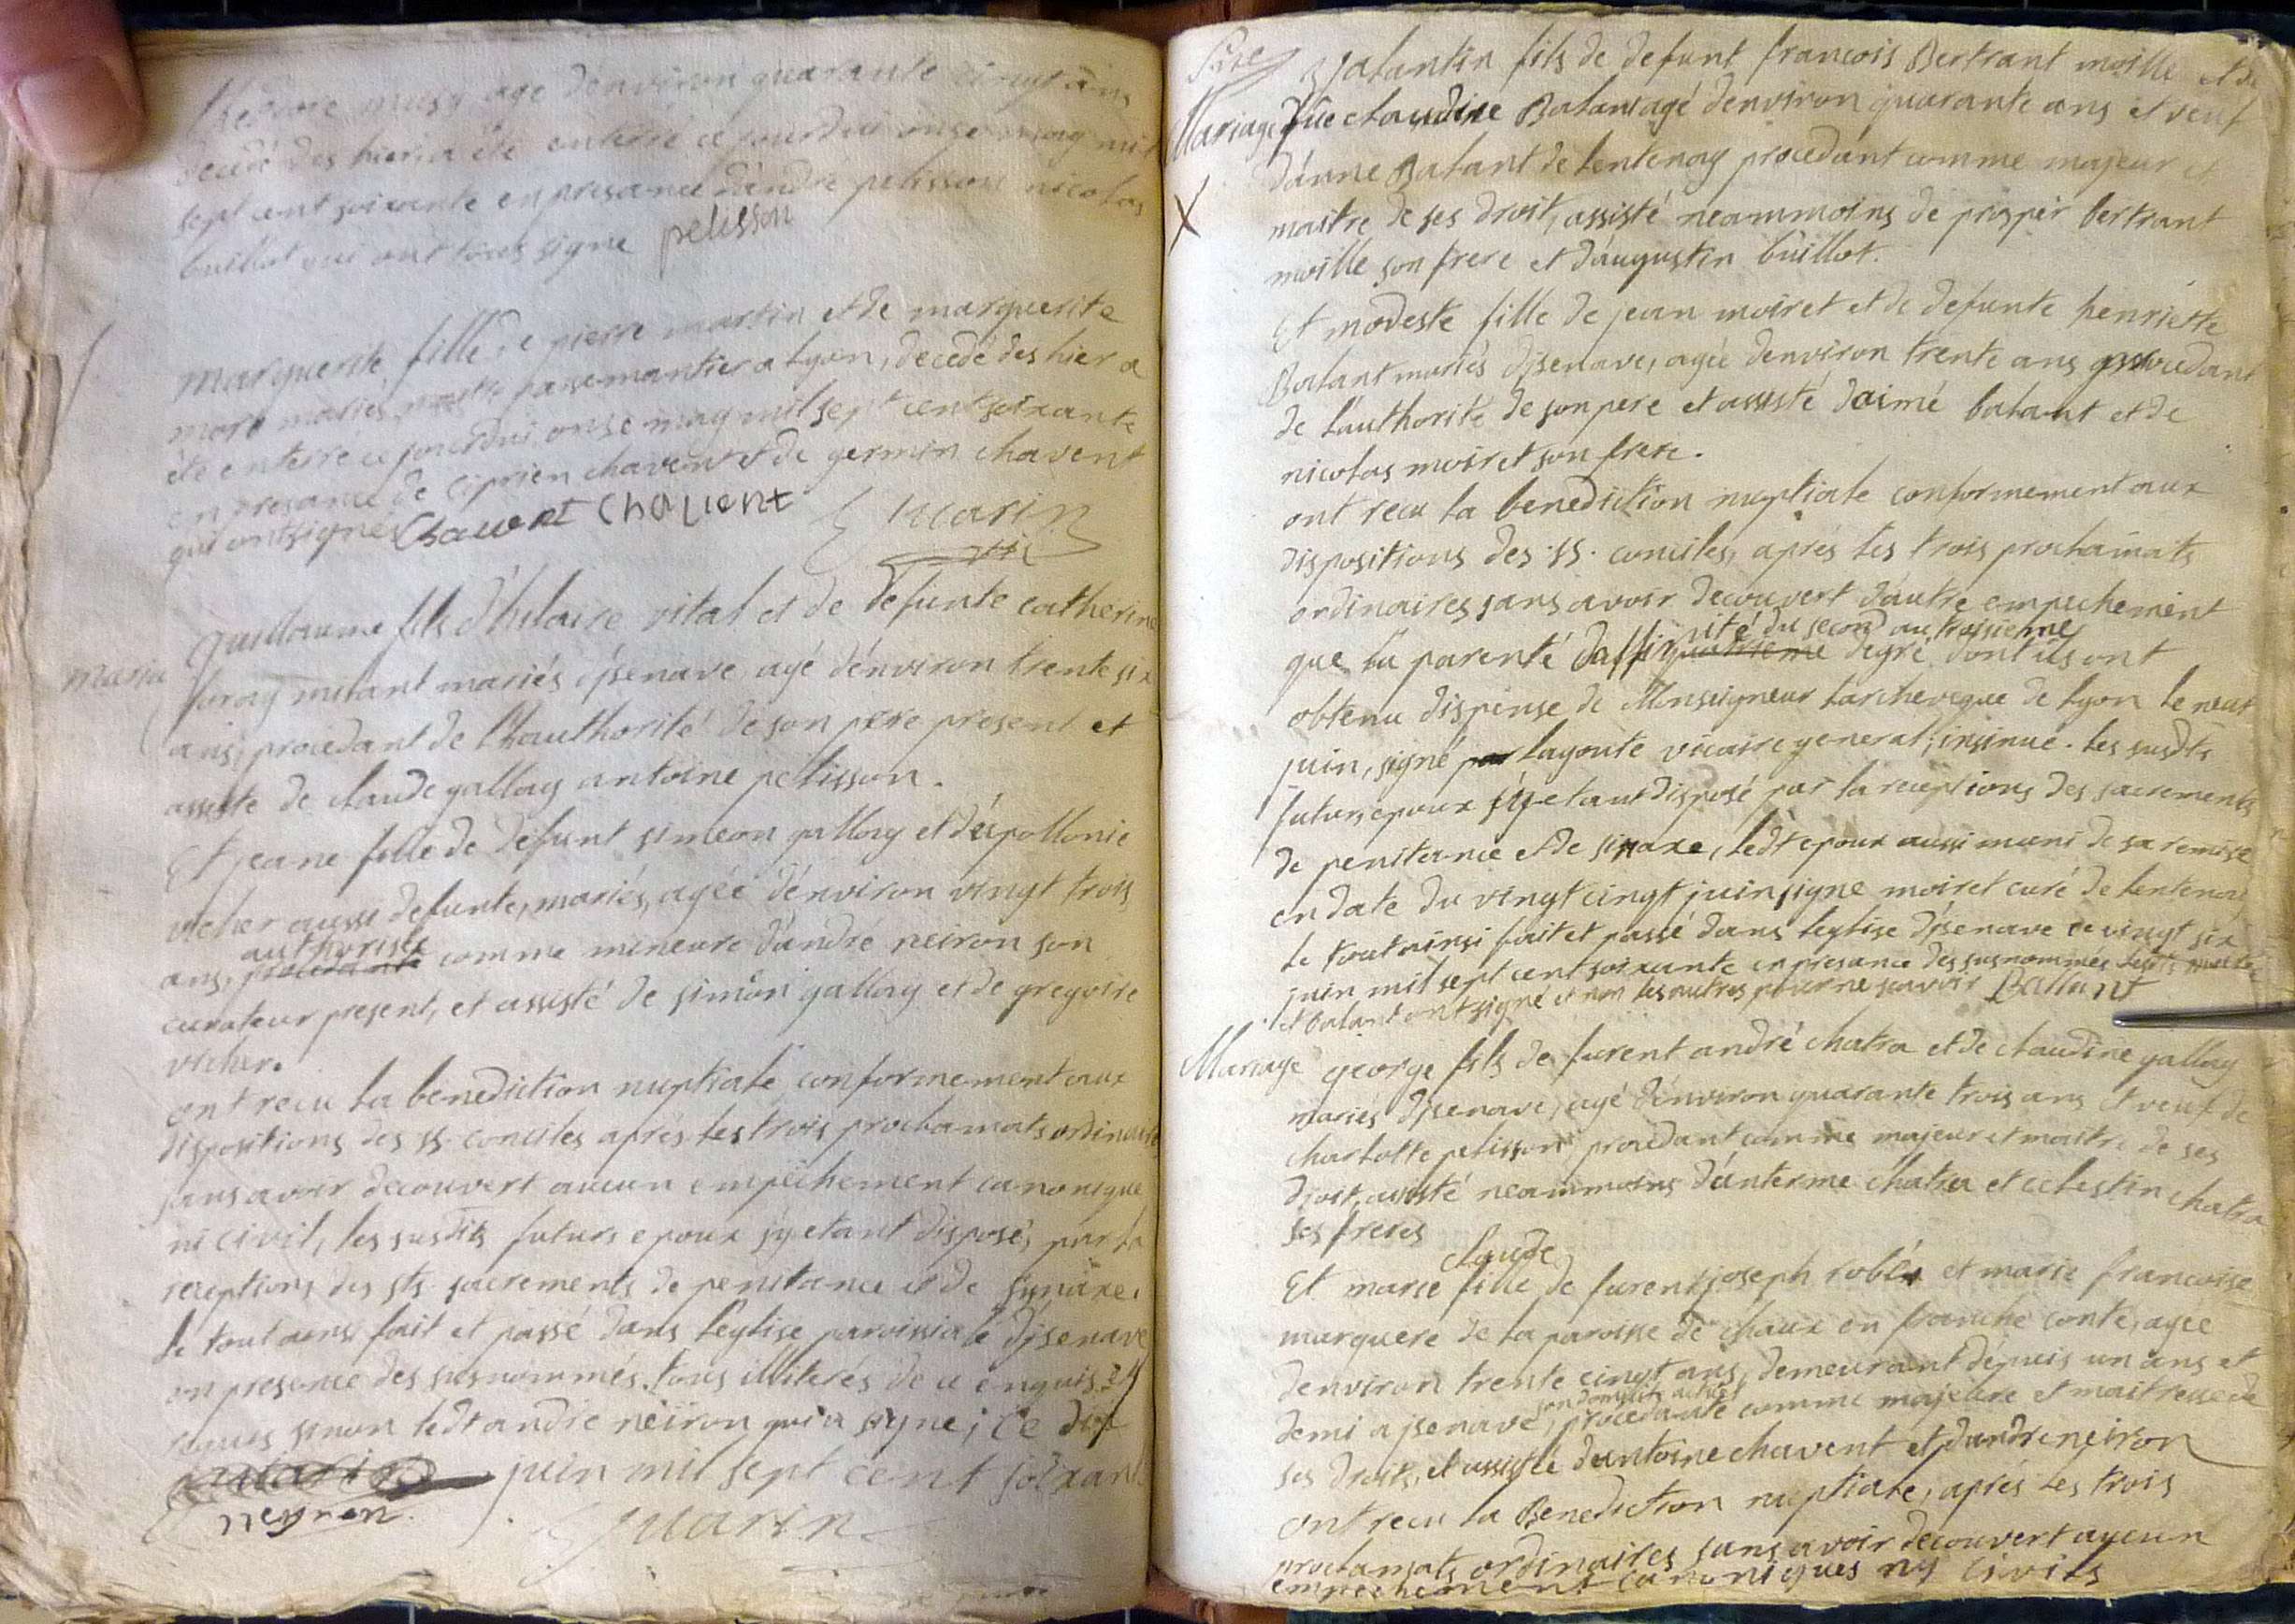 age d'environ quarante cinqt ans
decedé des hier a été enterré ce jourdui onse may mil
sept cent soixante en presance d'andré pelisson nicolas
buillot qui ont tous signé pelisson
marguerite fille de pierre martin et de marguerite
mariés passemantier a Lyon, decedé des hier a
été enterré ce jourdui onse may mil sept cent soixante
en presance de ciprien chavent et de germin chavent
qui ont signés Chavent Chavent
Marin
vic
Maria
guillaume fils d'hilaire vital et de defunte catherine
mariés d'jsenave, agé d'énviron trente six
ans, procedant de l'hauthorité de son pere present et
assisté de claude gallay antoine pelisson.
Et jeane fille de defunt simeon gallay et d'éspollonie
vicher aussi defunte, mariés, agée d'énviron vingt trois
authorisée
ans, procedante comme mineure d'andré neiron son
curateur present, et assisté de simon gallay et de gregoire
vicher.
ont recu la benediction nuptiale conformement aux
dispositions des ss. conciles aprés les trois proclamats ordinaires
sans avoir decouvert aucun empechement canonique
ni civil, les susdits futurs epoux s'y etant disposés par la
receptions des sts. sacrements de penitance et de sinaxe.
le tout ainsi fait et passé dans l'eglise paroissiale d'jsenave
en presence des susnommés. tous illiterés de ce enquis et
requis sinon ledt andré neiron qui a signé; Ce dix
juin mil sept cent soixante
neyron. Marin
Mariage
X
Valantin fils de defunt francois Bertrant moille et de
claudine Balant agé d'énviron quarante ans et veuf
d'anne Balant de lentenay procedant comme majeur et
maitre de ses droit, assisté neammoins de prosper bertrant
moille son frere et d'augustin buillot.
Et modeste fille de jean moiret et de defunte henriette
Balant mariés d'jsenave, agée d'énviron trente ans procedant
de l'authorité de son pere et assisté d'aimé balant et de
nicolas moiret son frere.
ont recu la benediction nuptiale conformement aux
dispositions des ss. conciles, aprés les trois proclamats
ordinaires sans avoir decouvert d'autre empechement
nité du second au troisieme
que la parenté d'affi quatrieme degré dont ils ont
obtenu dispense de Monseigneur l'archeveque de Lyon le neuf
juin, signé par Lagoute vicaire general; insinué. Les susdts
futurs epoux s'y etant disposé par la receptions des sacrements
de penitance et de sinaxe, ledt epoux aussi muni de sa remise
en date du vingt cinqt juin signe moiret curé de lentenay
le tout ainsi fait et passé dans l'eglise d'jsenave ce vingt six
juin mil sept cent soixante en presance des susnommés
et balant ont signé et non les autres pour ne scavoir Ballant
Mariage
george fils de furent andré chatra et de claudine gallay
mariés d'jsenave, agé d'énviron quarante trois ans et veuf de
charlotte pelisson procedant comme majeur et maitre de ses
droit, assisté neammoins d'anterme chatra et celestin chatra
ses freres
claude
Et marie fille de furent joseph robé et marie francoise
marquere de la paroisse de chaux en franche conté, agée
d'environ trente cinqt ans, demeurant dépuis un ans et
son domicile actuel
demi a jsenave, procedante comme majeure et maitresse de
ses droits, et assistée d'antoine chavent et d'andré neiron
ont recu la Benediction nuptiale, aprés les trois
proclamats ordinaires sans avoir decouvert aucun
empechement canoniques ny civils